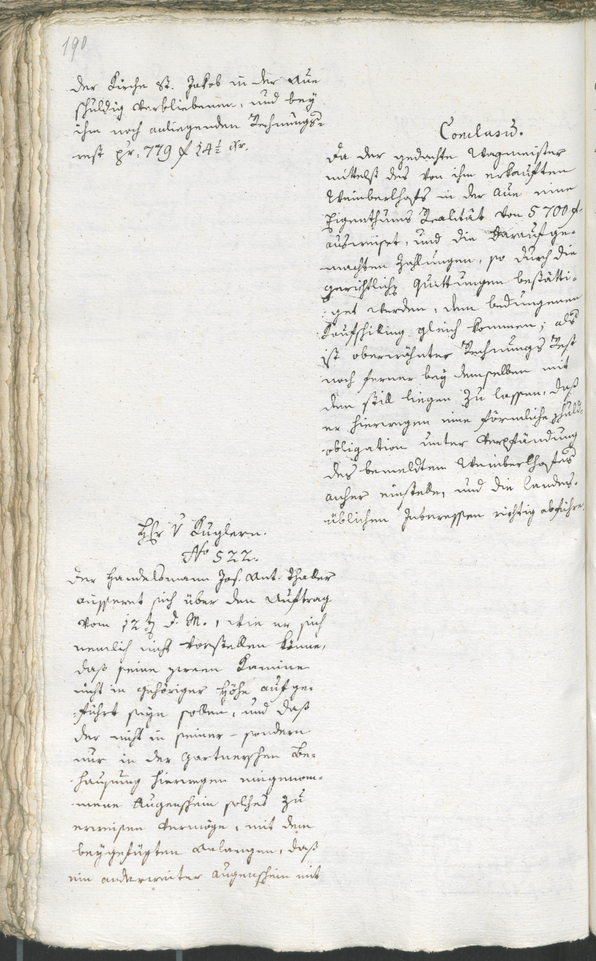 190
der Kirche St. Jakob in der Aue
schuldig verbliebenen, und bey
ihm noch anliegenden Rechnungs-
rest pr. 779 f 14½ xr.
Conclusum.
Da der gedachte Wagmeister
mittelst des von ihm erkauften
Weinberlhofs in der Aue eine
Eigenthums Realität von 5700 f
ausweiset, und die darauf ge-
machten Zahlungen, so durch die
gerichtliche Quittungen bestätti-
get werden, dem bedungenen
Kaufschilling gleich kommen; als
ist oberwähnter Rechnungs Rest
noch ferner bey demselben mit
dem still liegen zu lassen, daß
er hierwegen eine förmliche Schuld-
obligation unter Verpfändung
des bemeldten Weinberlhofes
anher einstelle, und die landes-
üblichen Interessen richtig abführe.
Hr v Kuglern.
No 522.
Der Handelsmann Jos. Ant. Thaler
äusseret sich über den Auftrag
vom 12 d. M., wie er sich
nemlich nicht vorstellen könne,
daß seine zween Kamine
nicht in gehöriger Höhe aufge-
führt seyn sollen, und daß
der nicht in seiner - sondern
nur in der Gartnerschen Be-
hausung hierwegen eingenom-
mene Augenschein solches zu
erweisen vermöge, mit dem
beygefügten Anlangen, daß
ein anderweiter Augenschein mit